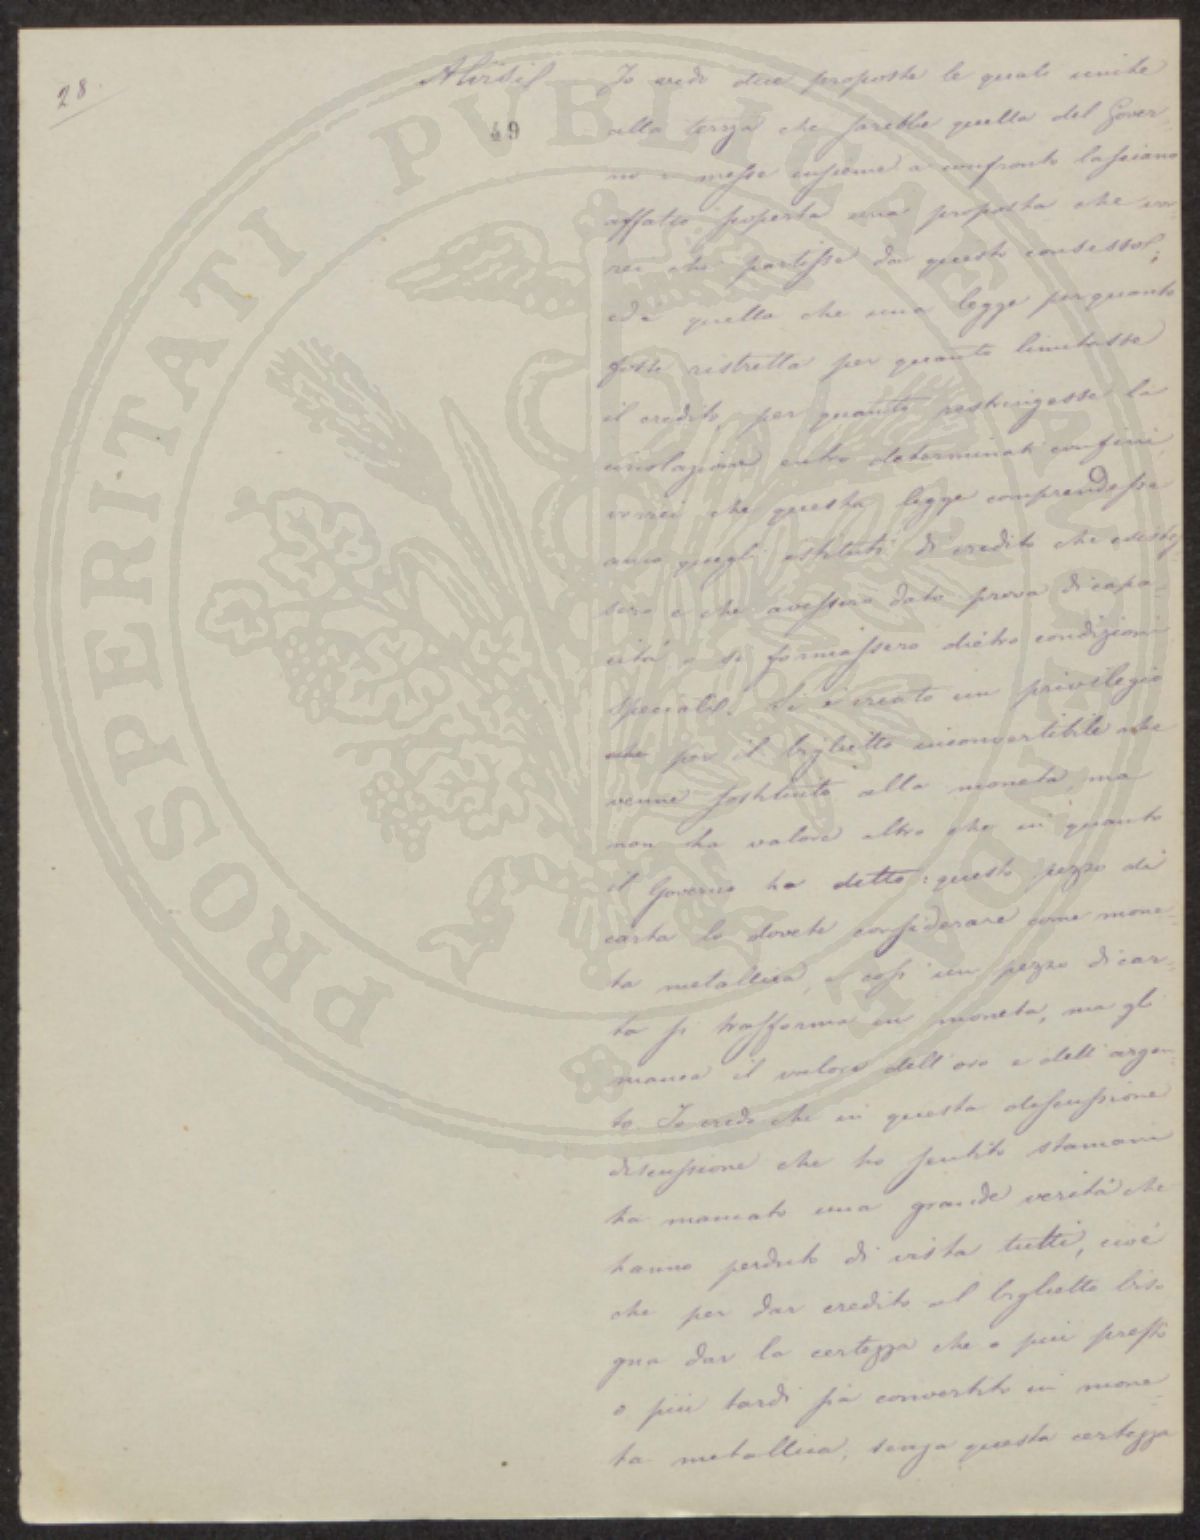 28.
Alvisi
49
Io vedo due proposte le quali unite
alla terza che sarebbe quella del Gover-
no e messe insieme a confronto lasciano
affatto scoperta una proposta che vor-
rei che partisse da questo consesso;
ed è quella che una legge per quanto
fosse ristretta per quanto limitasse
il credito, per quanto restringesse la
circolazione entro determinati confini,
vorrei che questa legge comprendesse
anco quegli istituti di credito che esistes-
sero e che avessero dato prova di capa-
cità o si formassero dietro condizioni
speciali. Si è creato un privilegio
che per il biglietto inconvertibile che
venne sostituito alla moneta, ma
non ha valore altro che in quanto
il Governo ha detto: questo pezzo di
carta lo dovete considerare come mone-
ta metallica, e così un pezzo di car-
ta si trasforma in moneta, ma gli
manca il valore dell'oro e dell'argen-
to Io credo che in questa discussione
discussione che ho sentito stamani
ha mancato una grande verità che
hanno perduto di vista tutti, cioè
che per dar credito al biglietto biso
gna dar la certezza che o più presto
o più tardi sia convertito in mone-
ta metallica, senza questa certezza
PROSPERITATI PVBLICAE